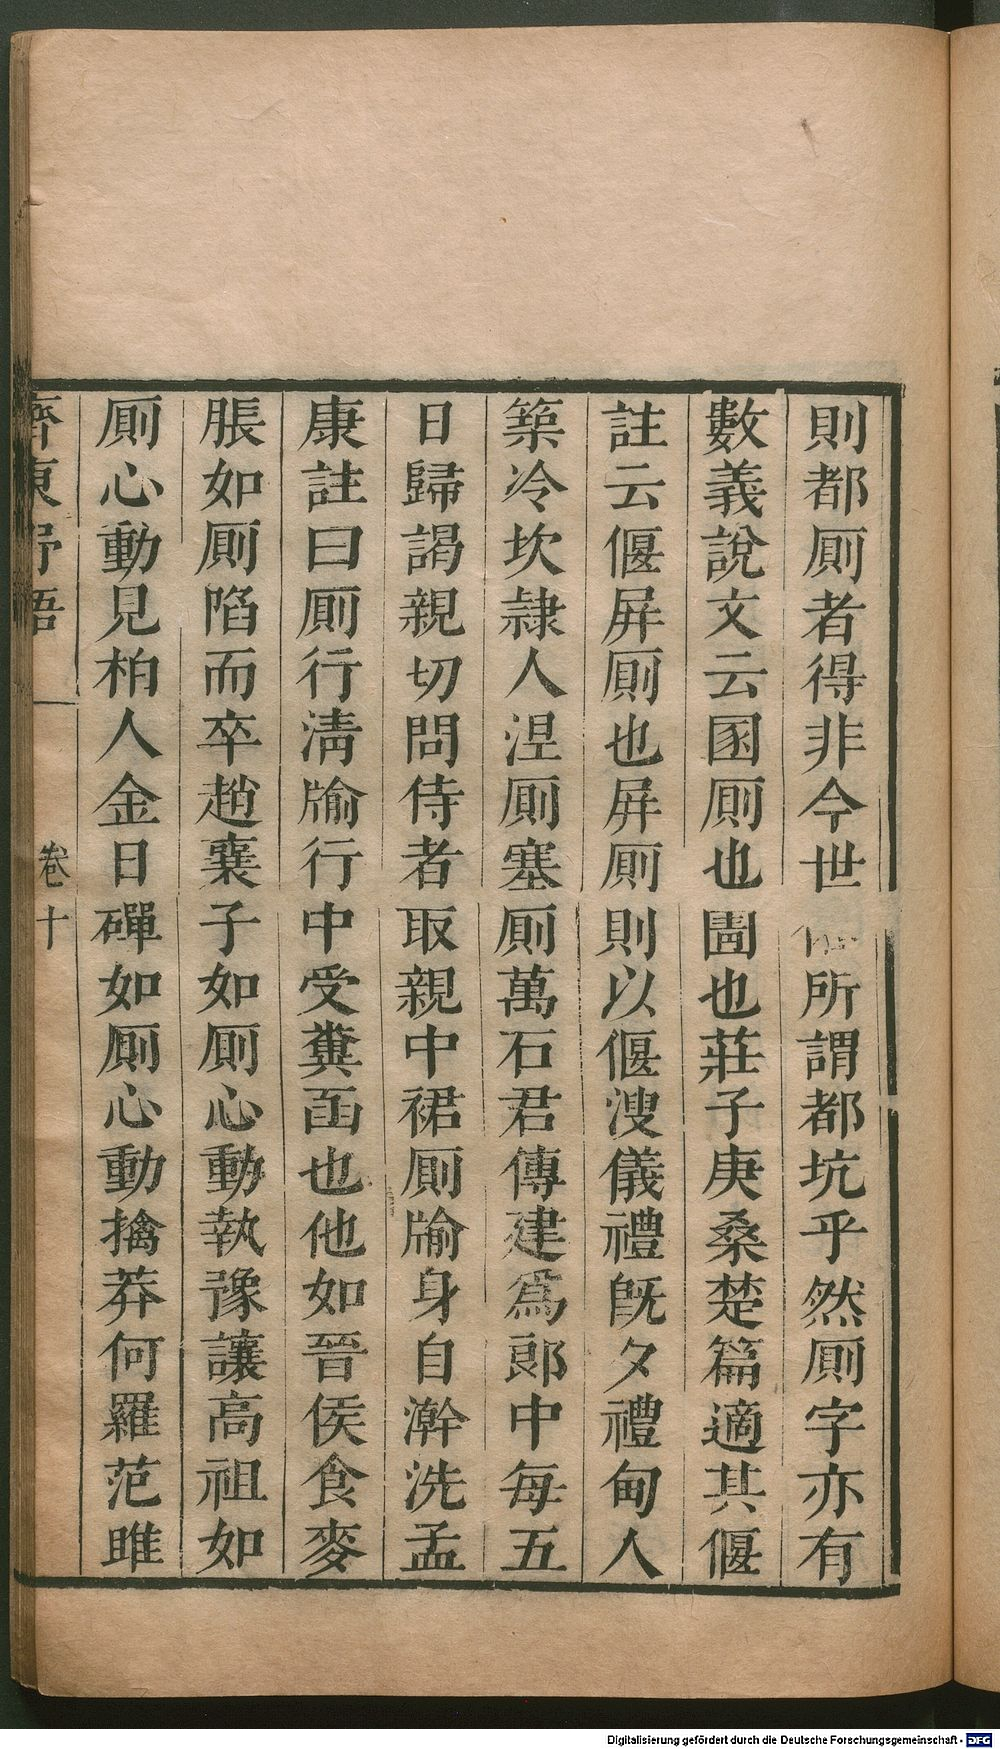 則都厠者得非今世所謂都坑乎然厠字亦有
數義說文云圂厠也圊也莊子庚桑楚篇適其偃
註云偃屏厠也屏厠則以偃溲儀禮旣夕禮甸人
築冷坎隷人涅厠塞厠萬石君傳建爲郞中每五
日歸謁親切問侍者取親中裙厠牏身自澣洗孟
康註曰厠行淸牏行中受糞函也他如晉侯食麥
脹如厠陷而卒趙襄子如厠心動執豫讓高祖如
厠心動見柏人金日磾如厠心動擒莽何羅范雎
齊東野語 卷十
Digitalisierung gefördert durch die Deutsche Forschungsgemeinschaft - DFG